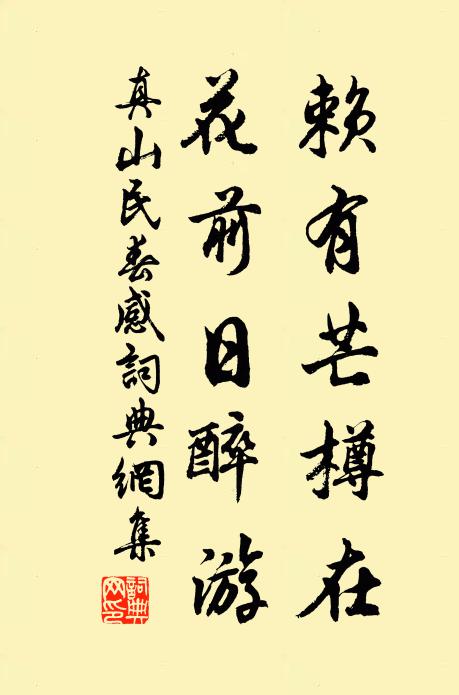 賴有芒樽在
花前日醉游
真山民春感詞典網集
詞典網印